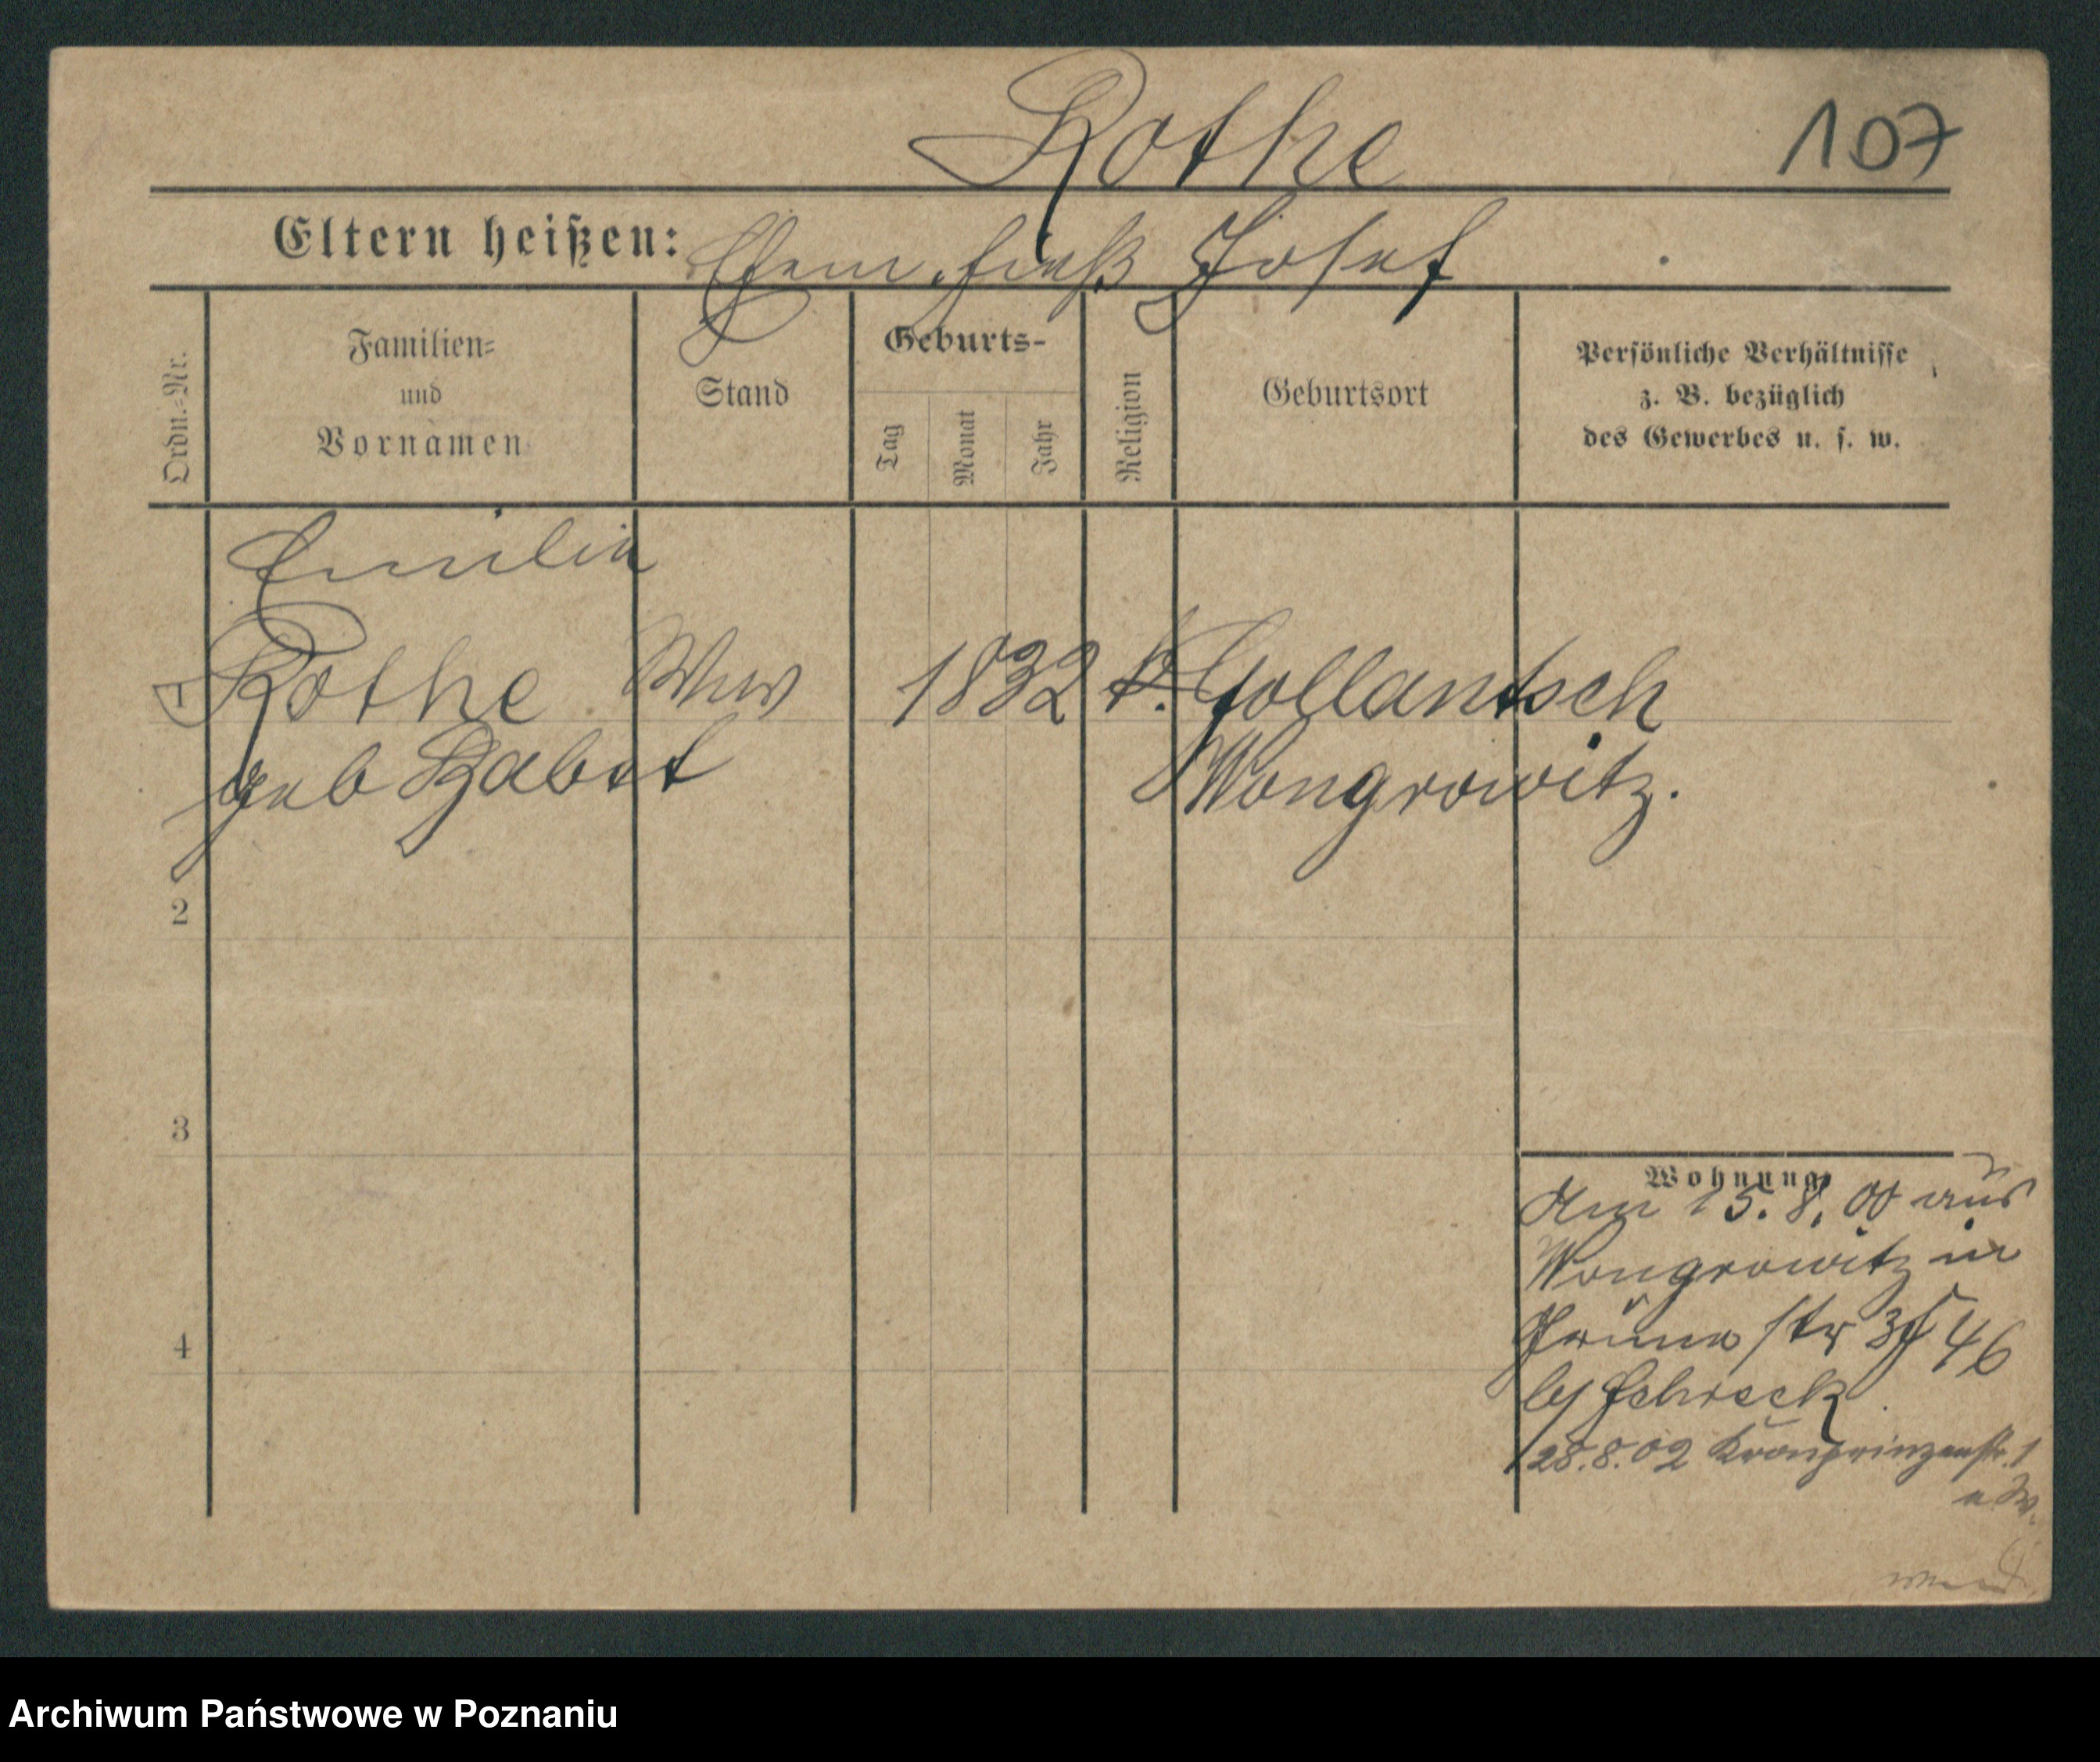 Rothe
107
Eltern heißen: Ehem. hieß Josef
Ordn.-Nr.
Familien-
und
Vornamen
Stand
Geburts-
Tag
Monat
Jahr
Religion
Geburtsort
Persönliche Verhältnisse
z. B. bezüglich
des Gewerbes u. s. w.
Emilie
1 Rothe Wwe 1832 k. Gollantsch
geb Wongrowitz.
2
3
Wohnung
Am 15.8.00 aus
Wongrowitz in
4
Grüne str 46
by Schreck
28.8.02 Kronprinzenstr. 1
Archiwum Państwowe w Poznaniu